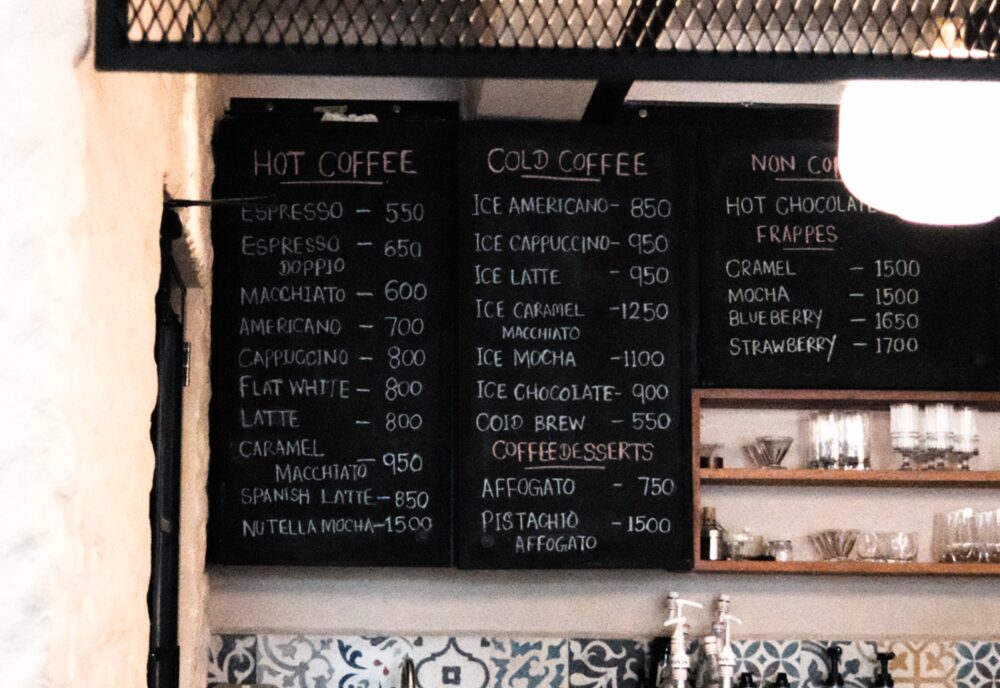 HOT COFFEE
ESPRESSO – 550
ESPRESSO – 650
DOPPIO
MACCHIATO – 600
AMERICANO – 700
CAPPUCCINO – 800
FLAT WHITE – 800
LATTE – 800
CARAMEL
MACCHIATO – 950
SPANISH LATTE – 850
NUTELLA MOCHA – 1500
COLD COFFEE
ICE AMERICANO – 850
ICE CAPPUCCINO – 950
ICE LATTE – 950
ICE CARAMEL – 1250
MACCHIATO
ICE MOCHA – 1100
ICE CHOCOLATE – 900
COLD BREW – 550
COFFEE DESSERTS
AFFOGATO – 750
PISTACHIO – 1500
AFFOGATO
NON
HOT CHOCOLATE
FRAPPES
CRAMEL – 1500
MOCHA – 1500
BLUEBERRY – 1650
STRAWBERRY – 1700